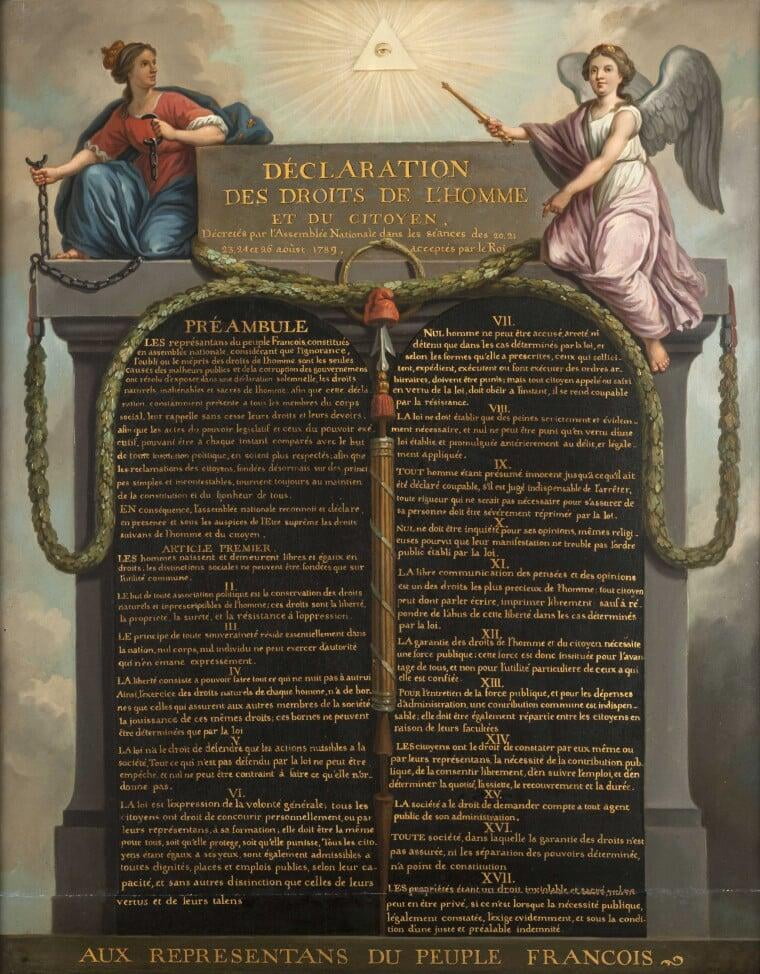 DÉCLARATION
DES DROITS DE L'HOMME
ET DU CITOYEN,
Décretés par l'Assemblée Nationale dans les séances des 20. 21
23. 24 et 26 aoùst 1789, acceptés par le Roi
PRÉAMBULE
LES représantans du peuple Francois, constitués
en assemblée nationale, considérant que l'ignorance,
l'oubli ou le mépris des droits de l'homme sont les seules
causes des malheurs publics et de la corruption des gouvernemens
ont résolu d'exposer dans une déclaration solemnelle, les droits
naturels, inaliénables et sacrés de l'homme; afin que cette décla
ration, constamment présente a tous les membres du corps
social, leur rappelle sans cesse leurs droits et leurs devoirs,
afin que les actes du pouvoir legislatif et ceux du pouvoir exé
cutif, pouvant être a chaque instant comparés avec le but
de toute institution politique, en soient plus respectés; afin que
les reclamations des citoyens, fondées désormais sur des princi
pes simples et incontestables, tournent toujours au maintien
de la constitution et du bonheur de tous.
EN conséquence, l'assemblée nationale reconnoit et déclare,
en presence et sous les auspices de l'Etre suprême les droits
suivans de l'homme et du citoyen.
ARTICLE PREMIER.
LES hommes naissent et demeurent libres et égaux en
droits, les distinctions sociales ne peuvent être fondées que sur
l'utilité commune.
II.
LE but de toute association politique est la conservation des droits
naturels et inprescriptibles de l'homme; ces droits sont la liberté,
la propriété, la sureté, et la résistance à l'oppression.
III
LE principe de toute souveraineté réside essentiellement dans
la nation, nul corps, nul individu ne peut exercer d'autorité
qui n'en émane expressement.
IV
LA liberté consiste a pouvoir faire tout ce qui ne nuit pas à autrui
Ainsi, l'exercice des droits naturels de chaque homme, n'a de bor-
nes que celles qui assurent aux autres membres de la société
la jouissance de ces mêmes droits; ces bornes ne peuvent
être déterminées que par la loi
V.
LA loi n'a le droit de défendre que les actions nuisibles a la
société. Tout ce qui n'est pas défendu par la loi ne peut être
empêché, et nul ne peut être contraint à faire ce qu'elle n'or-
donne pas.
VI.
LA loi est l'expression de la volonté générale; tous les
citoyens ont droit de concourir personnellement, ou par
leurs représentans, à sa formation; elle doit être la même
pour tous, soit qu'elle protege, soit qu'elle punisse, Tous les cito
yens étant égaux a ses yeux, sont également admissibles a
toutes dignités, places et emplois publics, selon leur ca-
pacité, et sans autres distinction que celles de leurs
vertus et de leurs talens
VII.
NUL homme ne peut être accusé, arreté ni
détenu que dans les cas déterminés par la loi, et
selon les formes qu'elle a prescrites, ceux qui sollici-
tent, expédient, exécutent ou font exécuter des ordres ar-
bitraires, doivent être punis; mais tout citoyen appelé ou saisi
en vertu de la loi, doit obéir a l'instant, il se rend coupable
par la résistance.
VIII.
LA loi ne doit établir que des peines strictement et évidem-
ment nécessaire, et nul ne peut être puni qu'en vertu d'une
loi établie et promulguée antérierement au délit, et légale-
ment appliquée.
IX.
TOUT homme étant présumé innocent jusqu'a ce qu'il ait
été déclaré coupable, s'il est jugé indispensable de l'arrêter,
toute rigueur qui ne serait pas nécessaire pour s'assurer de
sa personne doit être sévérement réprimée par la loi.
X.
NUL ne doit être inquiété pour ses opinions, mêmes religi
euses pourvu que leur manifestation ne trouble pas l'ordre
public établi par la loi.
XI.
LA libre communication des pensées et des opinions
est un des droits les plus precieux de l'homme; tout citoyen
peut dont parler écrire, imprimer librement: sauf à ré
pondre de l'abus de cette liberté dans les cas déterminés
par la loi.
XII.
LA garantie des droits de l'homme et du citoyen nécessite
une force publique; cette force est donc instituée pour l'avan
tage de tous, et non pour l'utilité particuliere de ceux a qui
elle est confiée.
XIII.
POUR l'entretien de la force publique, et pour les dépenses
d'administration, une contribution commune est indispen-
sable; elle doit être également répartie entre les citoyens en
raison de leurs facultées
XIV.
LES citoyens ont le droit de constater par eux même ou
par leurs représentans, la nécessité de la contribution pub-
lique, de la consentir librement, d'en suivre l'emploi, et d'en
déterminer la quotité, l'assiete, le recouvrement et la durée.
XV.
LA société a le droit de demander compte a tout agent
public de son administration.
XVI.
TOUTE société, dans laquelle la garantie des droits n'est
pas assurée, ni les séparation des pouvoirs déterminée,
n'a point de constitution
XVII.
LES propriétés étant un droit inviolable et sacré, nul ne
peut en être privé, si ce n'est lorsque la nécessité publique,
légalement constatée, l'exige evidemment, et sous la condi
tion d'une juste et préalable indemnité.
AUX REPRESENTANS DU PEUPLE FRANCOIS